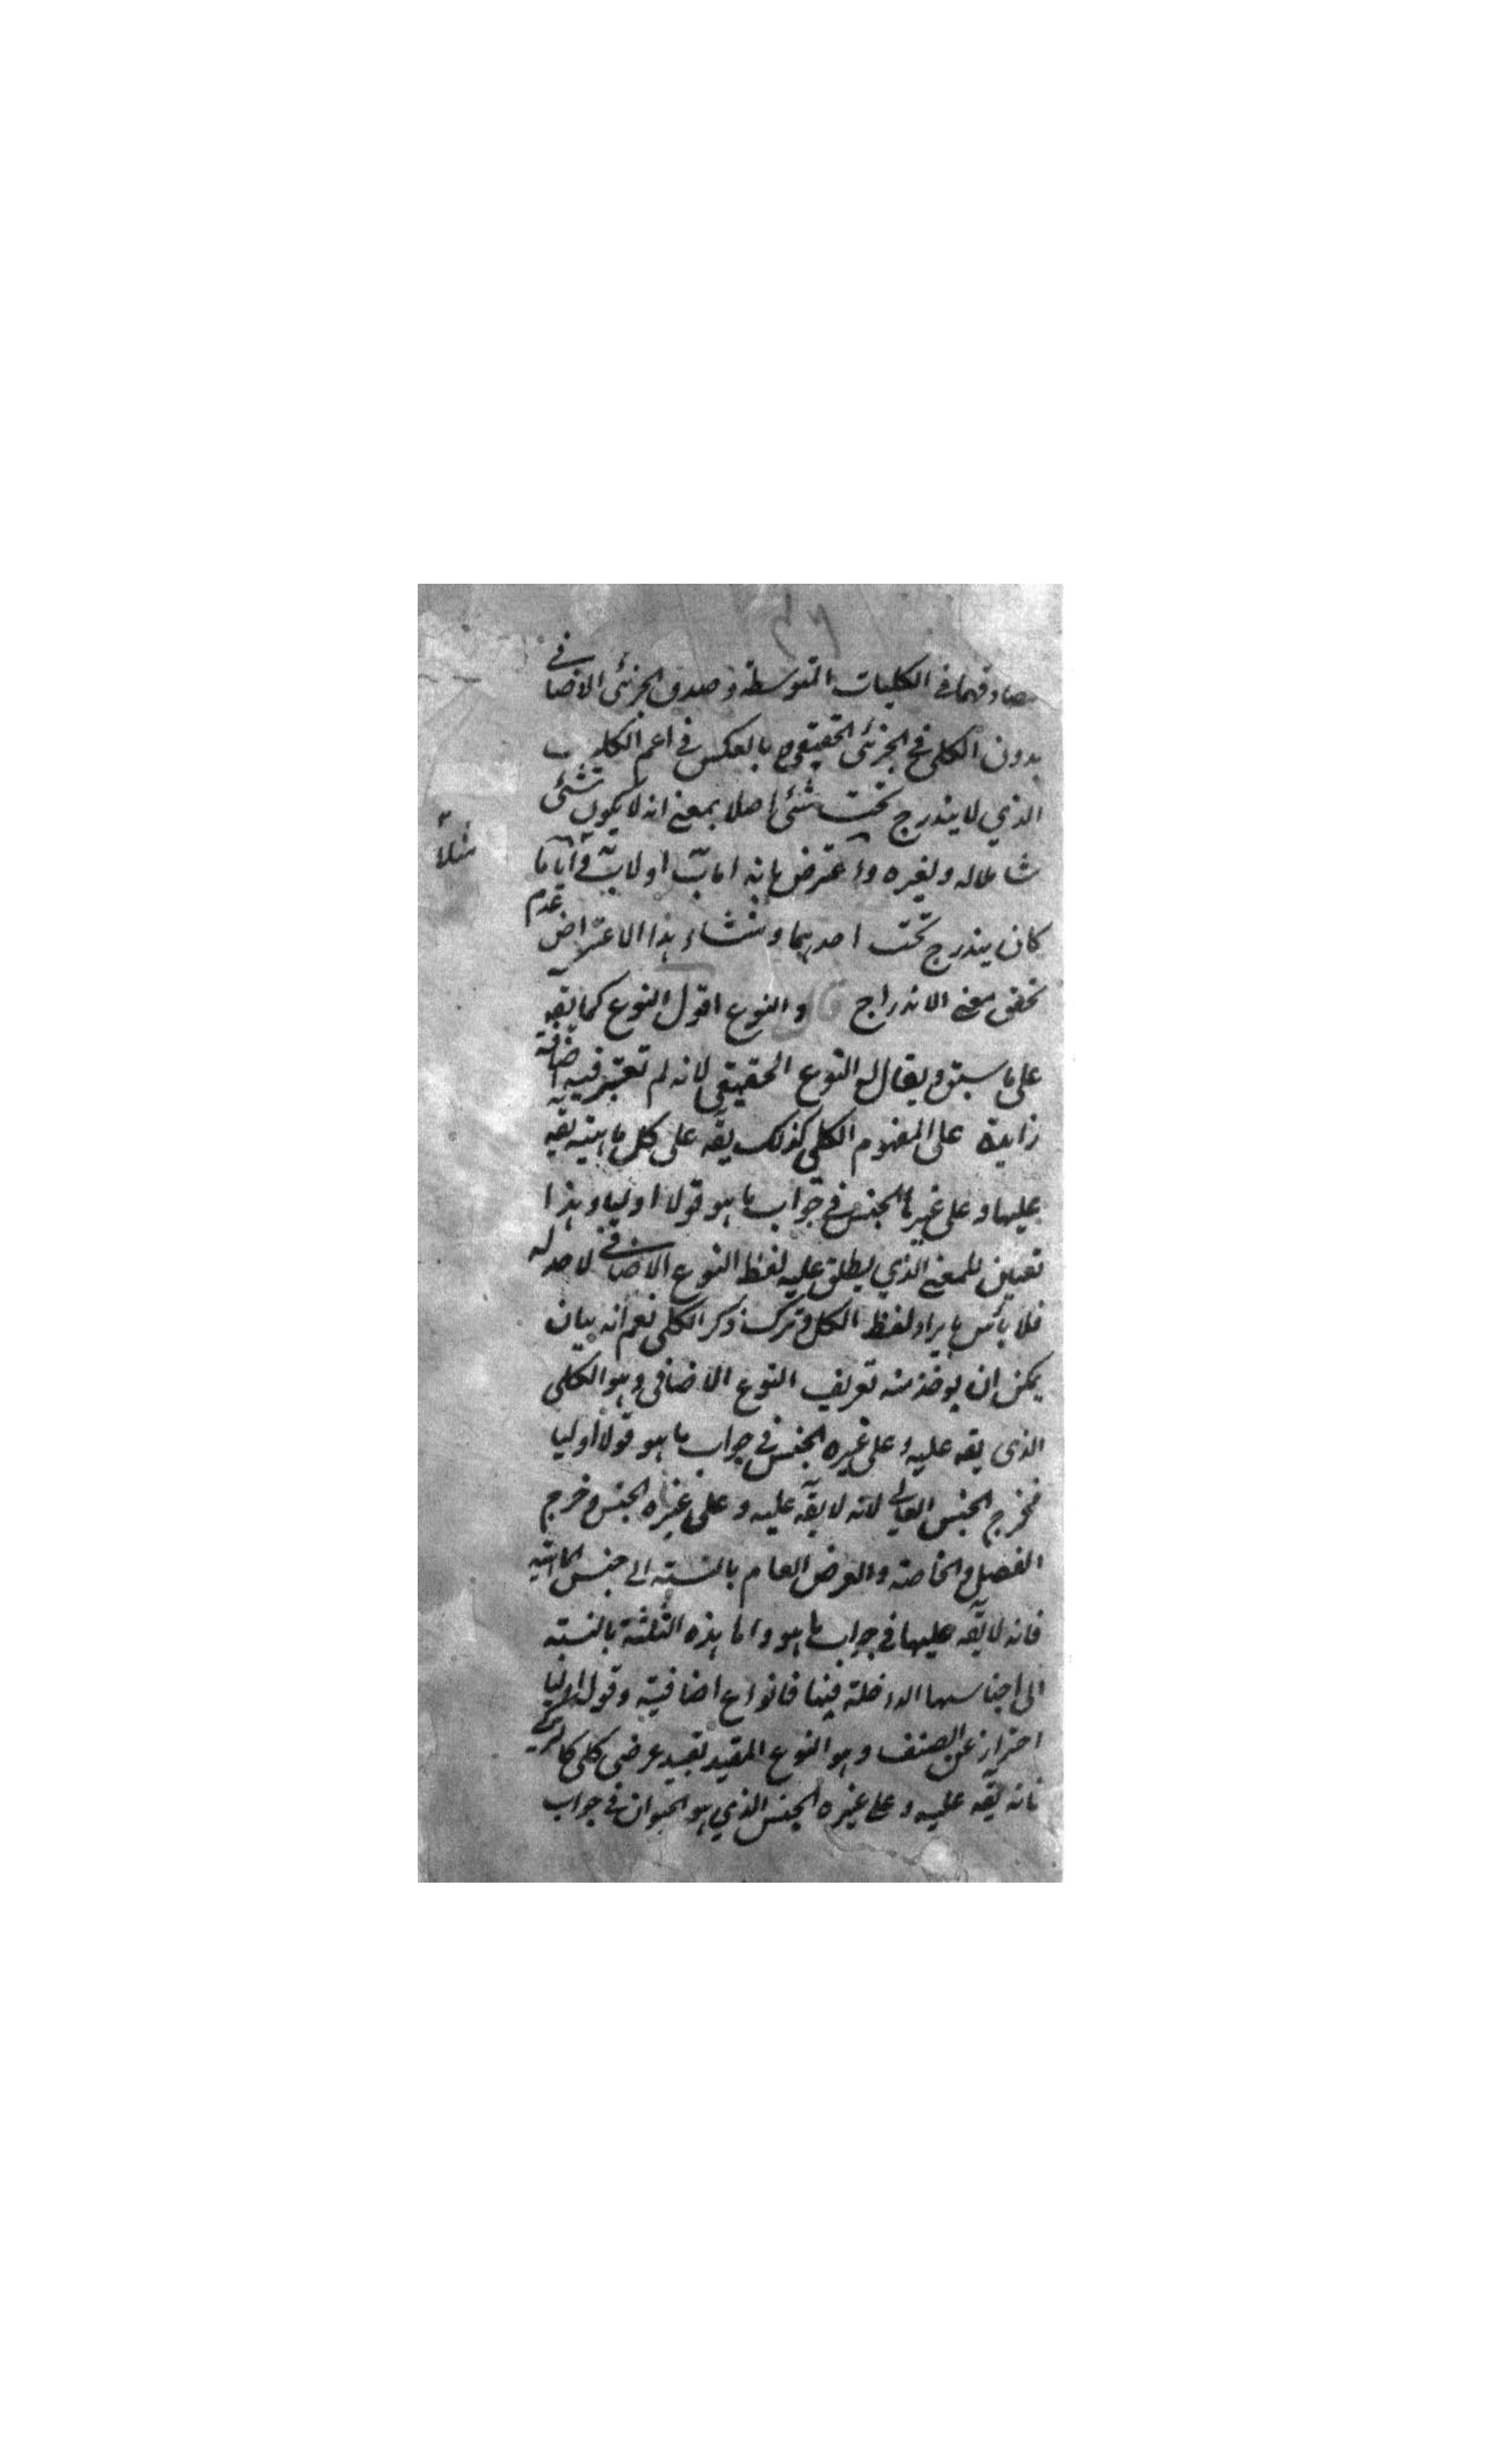 تصادقهما في الكليات المتوسطة وصدق الجزئي الاضافي
بدون الكلي في الجزئي الحقيقي وبالعكس في اعم الكليات
الذي لا يندرج تحت شئ اصلا بمعنى انه لا يكون شئ
شاملا له ولغيره واعترض بانه اما ب او لا ب وايا ما
كان يندرج تحت احدهما ومنشاء هذا الاعتراض عدم
تحقق معنى الاندراج قال والنوع اقول النوع كما يقه
على ما سبق ويقال له النوع الحقيقي لانه لم تعتبر فيه اضافة
زايدة على المفهوم الكلي كذلك يقه على كل ماهية يقه
عليها وعلى غيرها الجنس في جواب ما هو قولا اوليا وهذا
تعيين للمعنى الذي يطلق عليه لفظ النوع الاضافي لا حد له
فلا بأس بايراد لفظ الكل وترك ذكر الكلي نعم انه بيان
يمكن ان يوخذ منه تعريف النوع الاضافي وهو الكلي
الذي يقه عليه وعلى غيره الجنس في جواب ما هو قولا اوليا
فخرج الجنس العالي لانه لا يقه عليه وعلى غيره الجنس وخرج
الفصل والخاصة والعرض العام بالنسبة الى جنس الماهية
فانه لا يقه عليها في جواب ما هو واما هذه الثلثة بالنسبة
الى اجناسها الداخلة فيها فانواع اضافية وقوله اوليا
احتراز عن الصنف وهو النوع المقيد بقيد عرضي كلي كالتركي
فانه يقه عليه وعلى غيره الجنس الذي هو الحيوان في جواب
مثلا